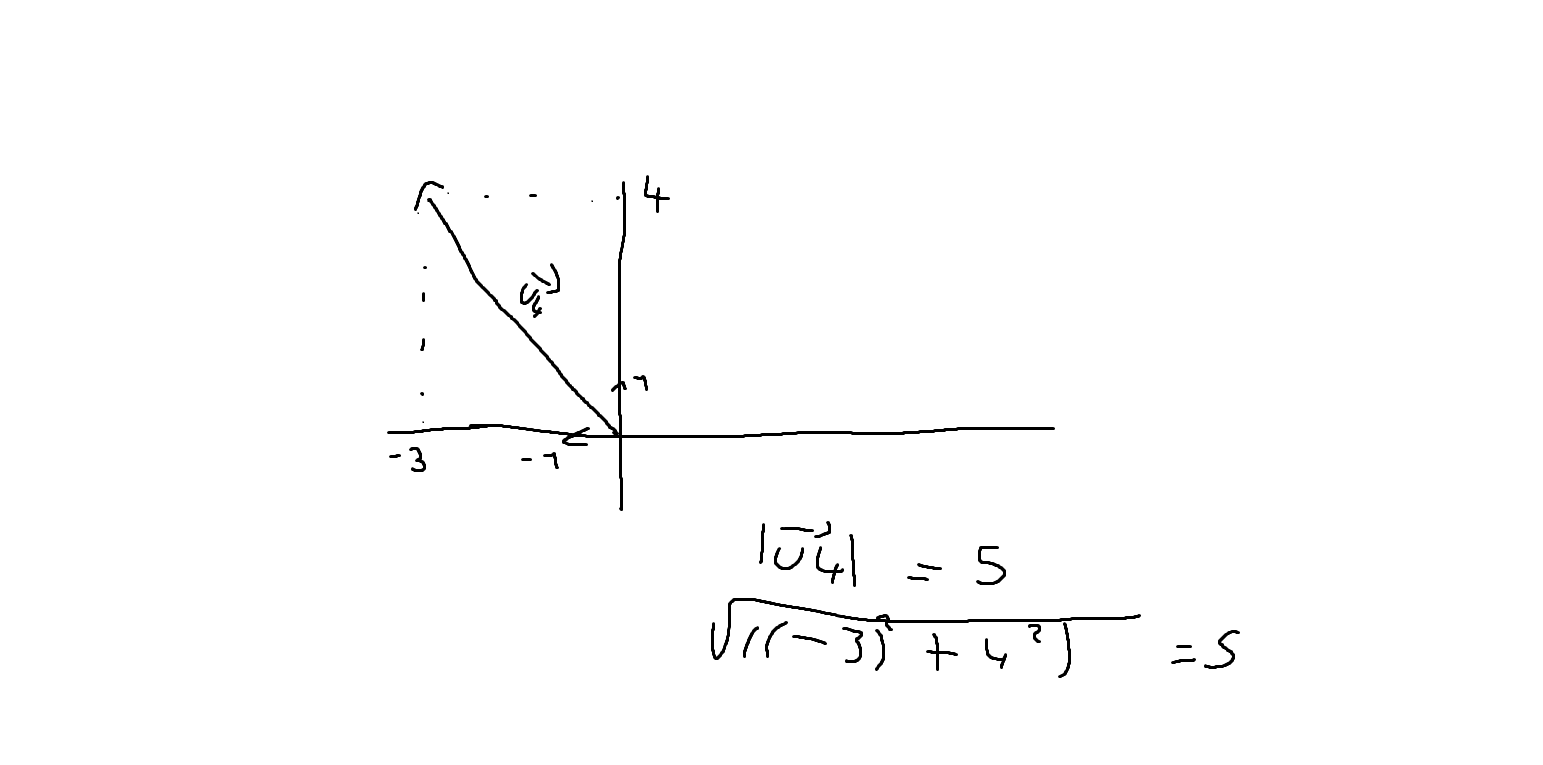 4
u⃗4
1
-3 -1
|u⃗4| = 5
√(((-3)² + 4²) = 5